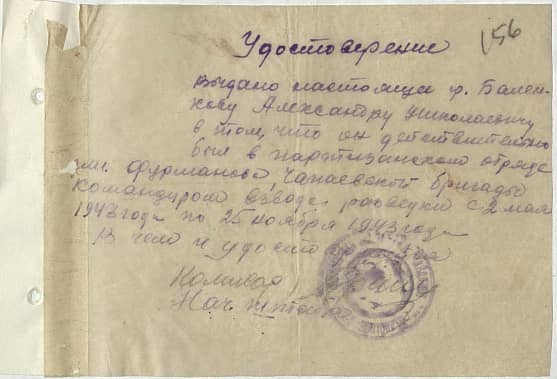 Удостоверение
156
Выдано настоящее гр. Бален-
кову Александру Николаевичу
в том, что он действительно
был в партизанском отряде
им. Фурманова, Чапаевской бригады
командиром взвода разведки с 2 мая
1943 года по 25 ноября 1943 года
В чем и удостоверяется
Нач штаба